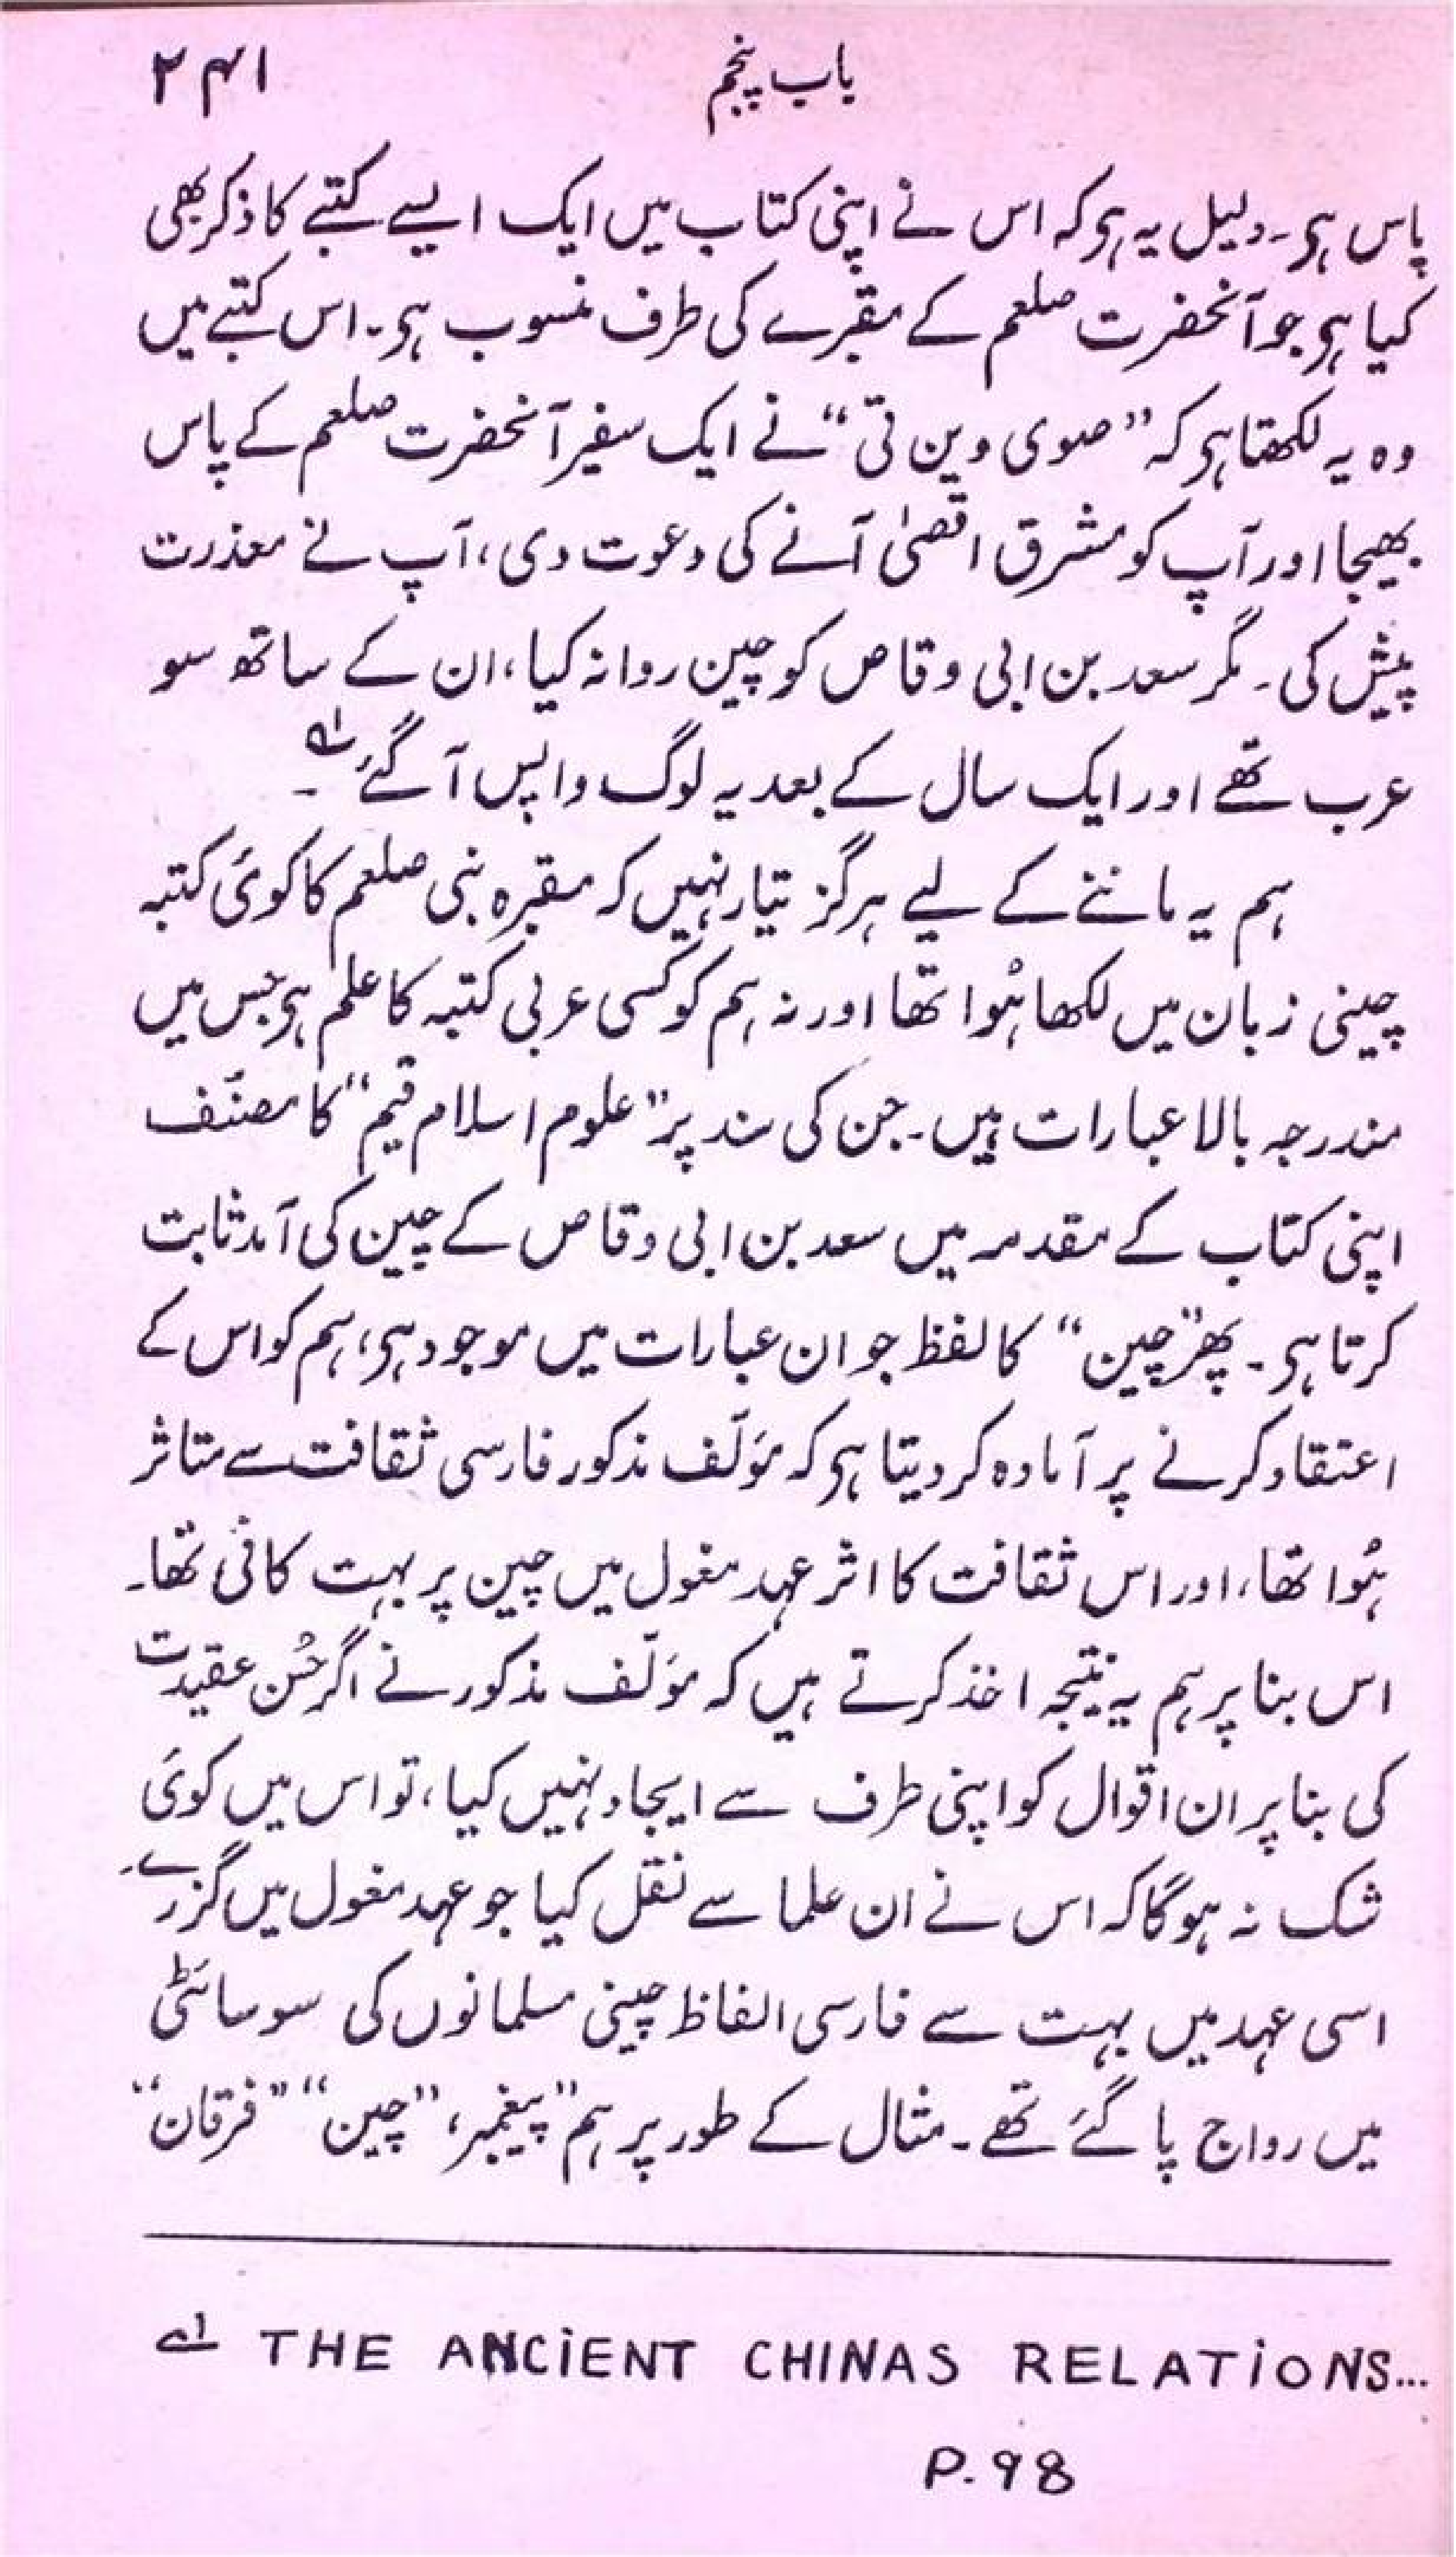 باب پنجم ۲۴۱
پاس ہی۔ دلیل یہ ہی کہ اس نے اپنی کتاب میں ایک ایسے کتبے کا ذکر بھی
کیا ہی جو آنحضرت صلعم کے مقبرے کی طرف منسوب ہی۔ اس کتبے میں
وہ یہ لکھتا ہی کہ ”صوی وین تی“ نے ایک سفیر آنحضرت صلعم کے پاس
بھیجا اور آپ کو مشرق اقصیٰ آنے کی دعوت دی، آپ نے معذرت
پیش کی۔ مگر سعد بن ابی وقاص کو چین روانہ کیا، ان کے ساتھ سو
عرب تھے اور ایک سال کے بعد یہ لوگ واپس آگئے ؎۱۔
ہم یہ ماننے کے لیے ہرگز تیار نہیں کہ مقبرہ نبی صلعم کا کوئی کتبہ
چینی زبان میں لکھا ہُوا تھا اور نہ ہم کو کسی عربی کتبہ کا علم ہی جس میں
مندرجہ بالا عبارات ہیں۔ جن کی سند پر ”علوم اسلام قیم“ کا مصنّف
اپنی کتاب کے مقدمہ میں سعد بن ابی وقاص کے چین کی آمد ثابت
کرتا ہی۔ پھر ”چین“ کا لفظ جو ان عبارات میں موجود ہی، ہم کو اس کے
اعتقاد کرنے پر آمادہ کر دیتا ہی کہ مؤلّف مذکور فارسی ثقافت سے متاثر
ہُوا تھا، اور اس ثقافت کا اثر عہد مغول میں چین پر بہت کافی تھا۔
اس بنا پر ہم یہ نتیجہ اخذ کرتے ہیں کہ مؤلّف مذکور نے اگر حُسن عقیدت
کی بنا پر ان اقوال کو اپنی طرف سے ایجاد نہیں کیا، تو اس میں کوئی
شک نہ ہوگا کہ اس نے ان علما سے نقل کیا جو عہد مغول میں گزرے۔
اسی عہد میں بہت سے فارسی الفاظ چینی مسلمانوں کی سوسائٹی
میں رواج پا گئے تھے۔ مثال کے طور پر ہم ”پیغمبر، ”چین“ ”فرقان“
؎۱ THE ANCiENT CHINAS RELATiONS...
P.98